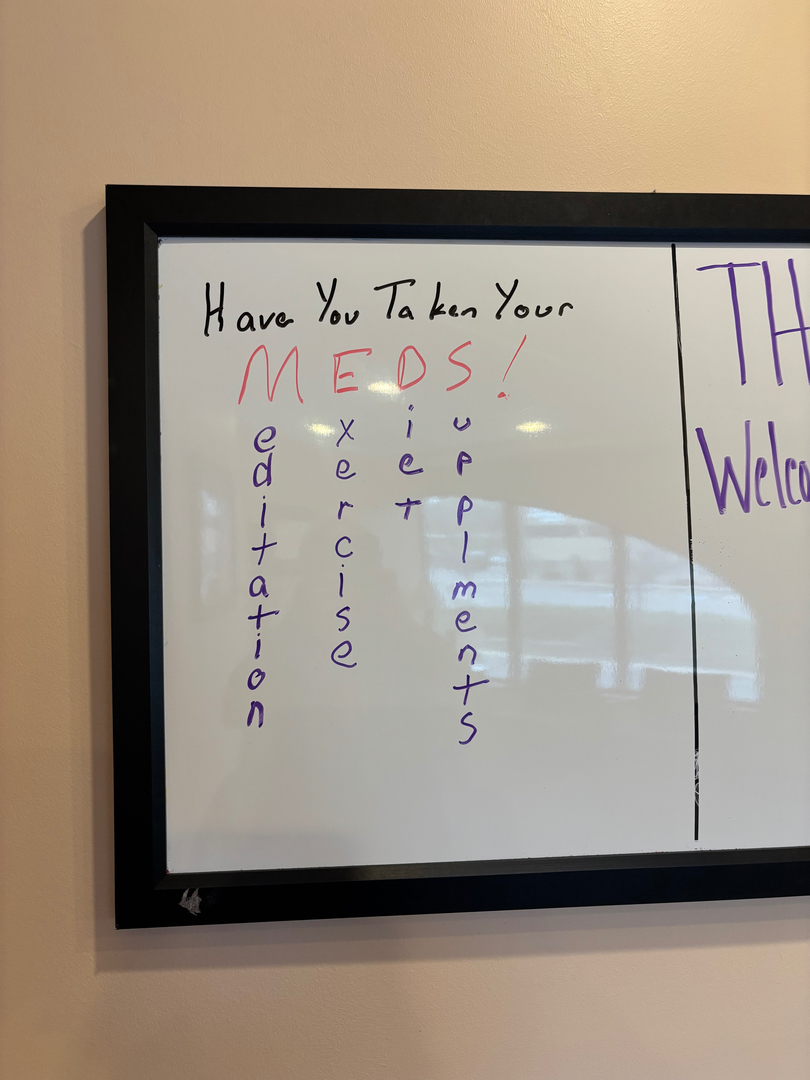 Have You Taken Your
MEDS!
editation
xercise
iet
upplments
TH
Welco